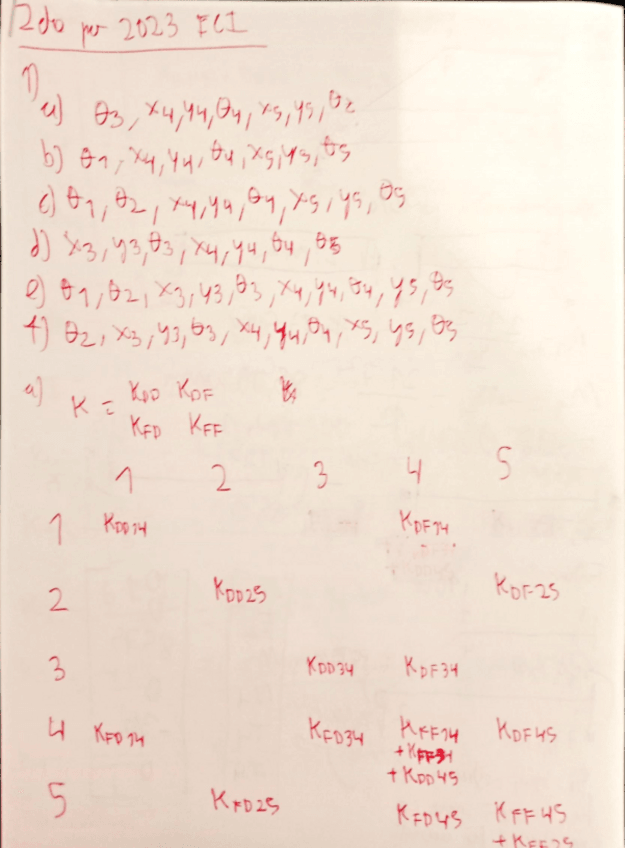 2do per 2023 FCI
1)
a) θ3, x4, y4, θ4, x5, y5, θ2
b) θ1, x4, y4, θ4, x5, y5, θ5
c) θ1, θ2, x4, y4, θ4, x5, y5, θ5
d) x3, y3, θ3, x4, y4, θ4, θ5
e) θ1, θ2, x3, y3, θ3, x4, y4, θ4, y5, θ5
f) θ2, x3, y3, θ3, x4, y4, θ4, x5, y5, θ5
a) K = KDD KDF
KFD KFF
1 2 3 4 5
1 KDD14 KDF14
2 KDD25 KDF25
3 KDD34 KDF34
4 KFD14 KFD34 KFF14 KDF45
+KFF34
+KDD45
5 KFD25 KFD45 KFF45
+KFF25